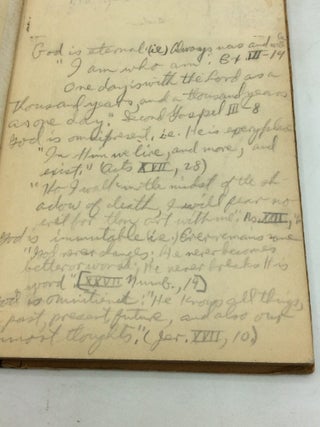 God is eternal (i.e.) Always was and will
"I am who am." Ex III-14
One day is with the Lord as a
thousand years, and a thousand years
as one day." Second Gospel III-8
God is omnipresent. i.e. He is everywhere
"In Him we live, and move, and
exist." (Acts XVII, 28)
"Tho I walk in the midst of the sh
adow of death, I will fear no
evil for thou art with me." Ps.
God is immutable (i.e.) Ever remains same
"God never changes. He never becomes
better or worse; He never breaks His
word" (XXVII Numb., 19)
God is omnitient: "He knows all things,
past, present future, and also our
most thoughts." (Jer. XVII, 10)